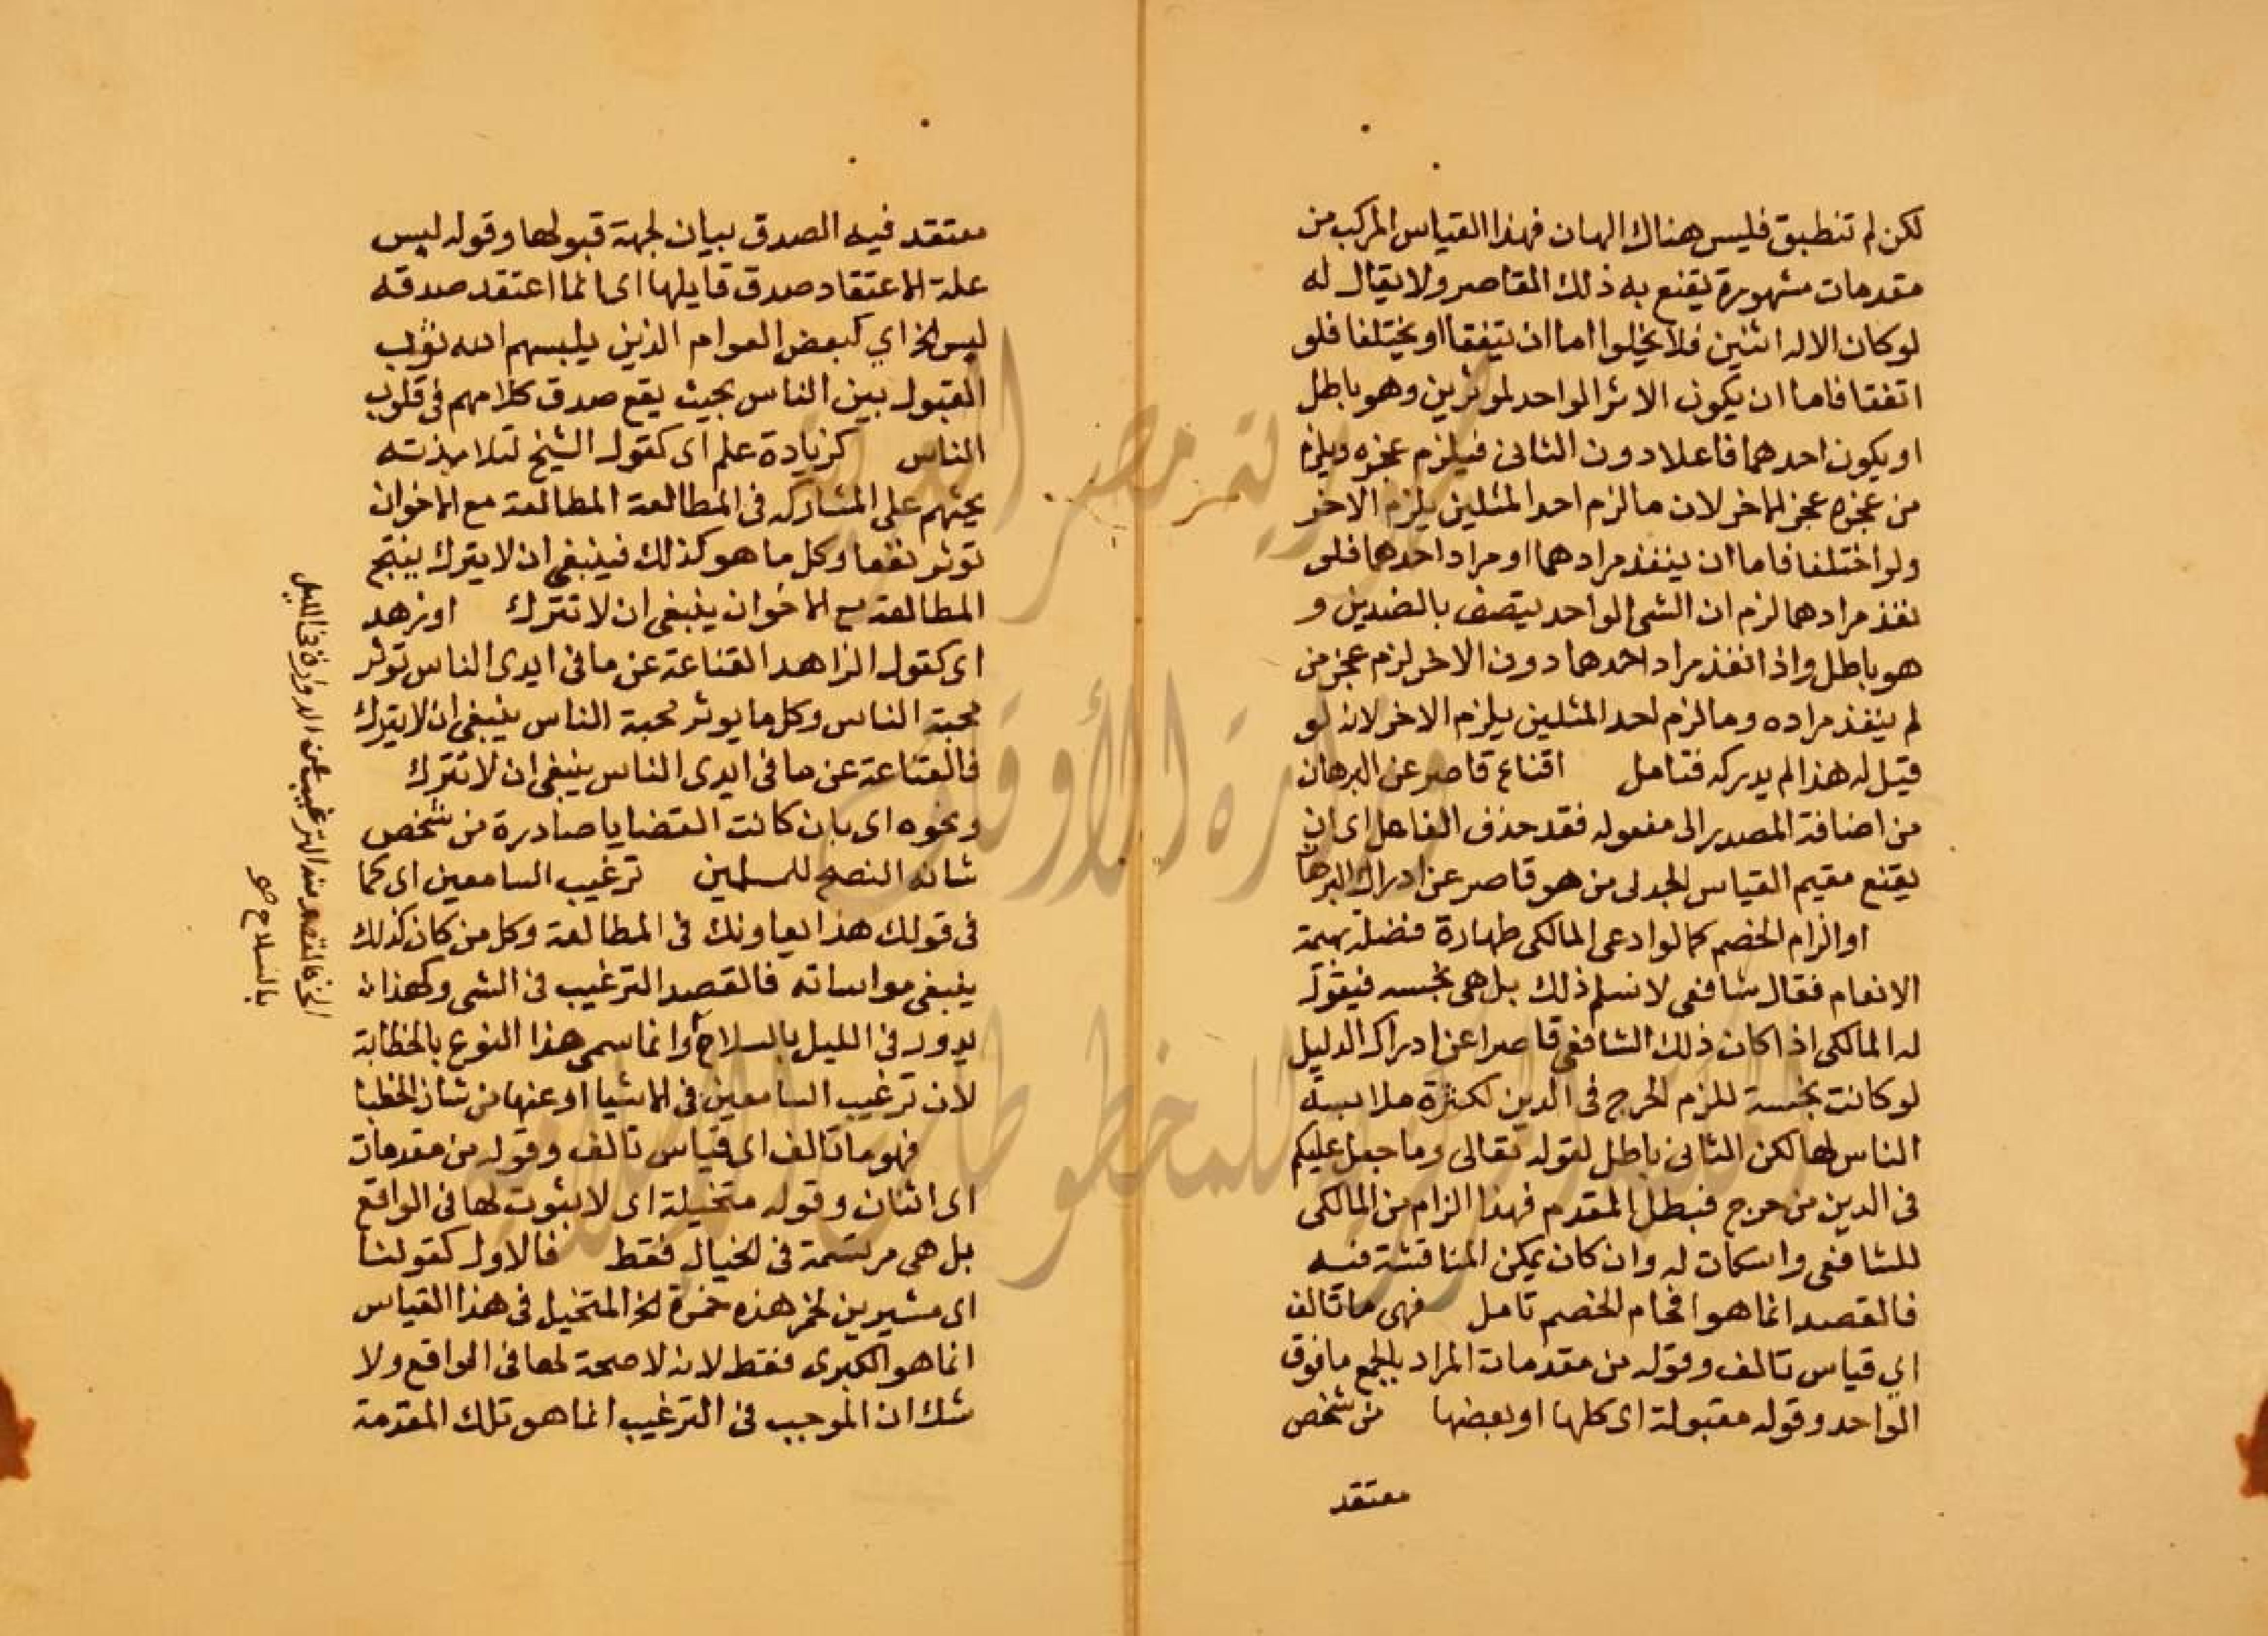 لكن لم تنطبق فليس هناك الهان فهذا القياس المركب من
مقدمات مشهورة يقنع به ذلك القاصر ولا يقال له
لو كان الاله اثنين فلا يخلوا اما ان يتفقا او يختلفا فلو
اتفقا فاما ان يكون الاثر الواحد لموثرين وهو باطل
او يكون احدهما فاعلا دون الثانى فيلزم عجزه ويلزم
من عجزه عجز الاخر لان ما لزم احد المثلين يلزم الاخر
ولو اختلفا فاما ان ينفذ مرادهما او مراد احدهما فلو
نفذ مرادهما لزم ان الشى الواحد يتصف بالضدين و
هو باطل واذا نفذ مراد احدهما دون الاخر لزم عجز من
لم ينفذ مراده وما لزم احد المثلين يلزم الاخر لانه لو
قيل له هذا لم يدركه فتامل اقناع قاصر عن البرهان
من اضافة المصدر الى مفعوله فقد حذف الفاعل اى ان
يقنع مقيم القياس الجدلى من هو قاصر عن ادراك البرهان
او الزام الخصم كما لو ادعى المالكى طهارة فضلة بهيمة
الانعام فقال شافعى لا نسلم ذلك بل هى نجسه فيقول
له المالكى اذا كان ذلك الشافعى قاصرا عن ادراك الدليل
لو كانت نجسة للزم الحرج فى الدين لكثرة ملابسة
الناس لها لكن الثانى باطل لقوله تعالى وما جعل عليكم
فى الدين من حرج فبطل المقدم فهذا الزام من المالكى
للشافعى واسكات له وان كان يمكن المناقشة فيه
فالقصد انما هو افحام الخصم تامل فهى ما تالف
اي قياس تالف وقوله من مقدمات المراد بالجمع ما فوق
الواحد وقوله مقبولة اى كلها او بعضها من شخص
معتقد
معتقد فيه الصدق بيان لجهة قبولها وقوله ليس
علة لاعتقاد صدق قايلها اى انما اعتقد صدقه
ليس الخ اي كبعض العوام الذين يلبسهم الله ثوب
القبول بين الناس بحيث يقع صدق كلامهم فى قلوب
الناس كزيادة علم اى كقول الشيخ لتلامذته
يحثهم على المشاركه فى المطالعة المطالعة مع الاخوان
توثر نفعا وكل ما هو كذلك فينبغى ان لا يترك ينتج
المطالعة مع الاخوان ينبغى ان لا تترك او زهد
اى كقول الزاهد القناعة عن ما فى ايدى الناس توثر
محبة الناس وكل ما يوثر محبة الناس ينبغى ان لا يترك
فالقناعة عن ما فى ايدى الناس ينبغى ان لا تترك
ونحوه اى بان كانت القضايا صادرة من شخص
شانه النصح للمسلمين ترغيب السامعين اى كما
فى قولك هذا يعاونك فى المطالعة وكل من كان كذلك
ينبغى مواساته فالقصد الترغيب فى الشى وكهذان
يدور فى الليل بالسلاح وانما سمى هذا النوع بالخطابة
لان ترغيب السامعين فى الاشيا او عنها من شان الخطبا
فهو ما تالف اى قياس تالف وقوله من مقدمات
اى اثنان وقوله متخيلة اى لا ثبوت لها فى الواقع
بل هى مرتسمة فى الخيال فقط فالاول كقولنا
اى مشيرين لخمر هذه خمرة الخ المتخيل فى هذا القياس
انما هو الكبرى فقط لانه لا صحة لها فى الواقع ولا
شك ان الموجب فى الترغيب انما هو تلك المقدمة
الخ فالقصد منه الترغيب عن الدوارة فى الليل
بالسلاح صح
جمهورية مصر العربية
وزارة الأوقاف
المكتبة المركزية للمخطوطات الإسلامية